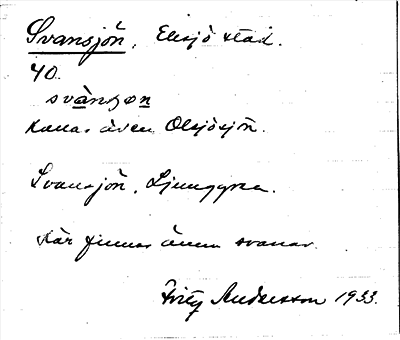 Svansjön, Eksjö stad.
40.
svànʒøn
Kallas även Olsjösjön.
Svansjön, Ljunggren.
Här finnas även svanar.
Fritz Andersson 1933.